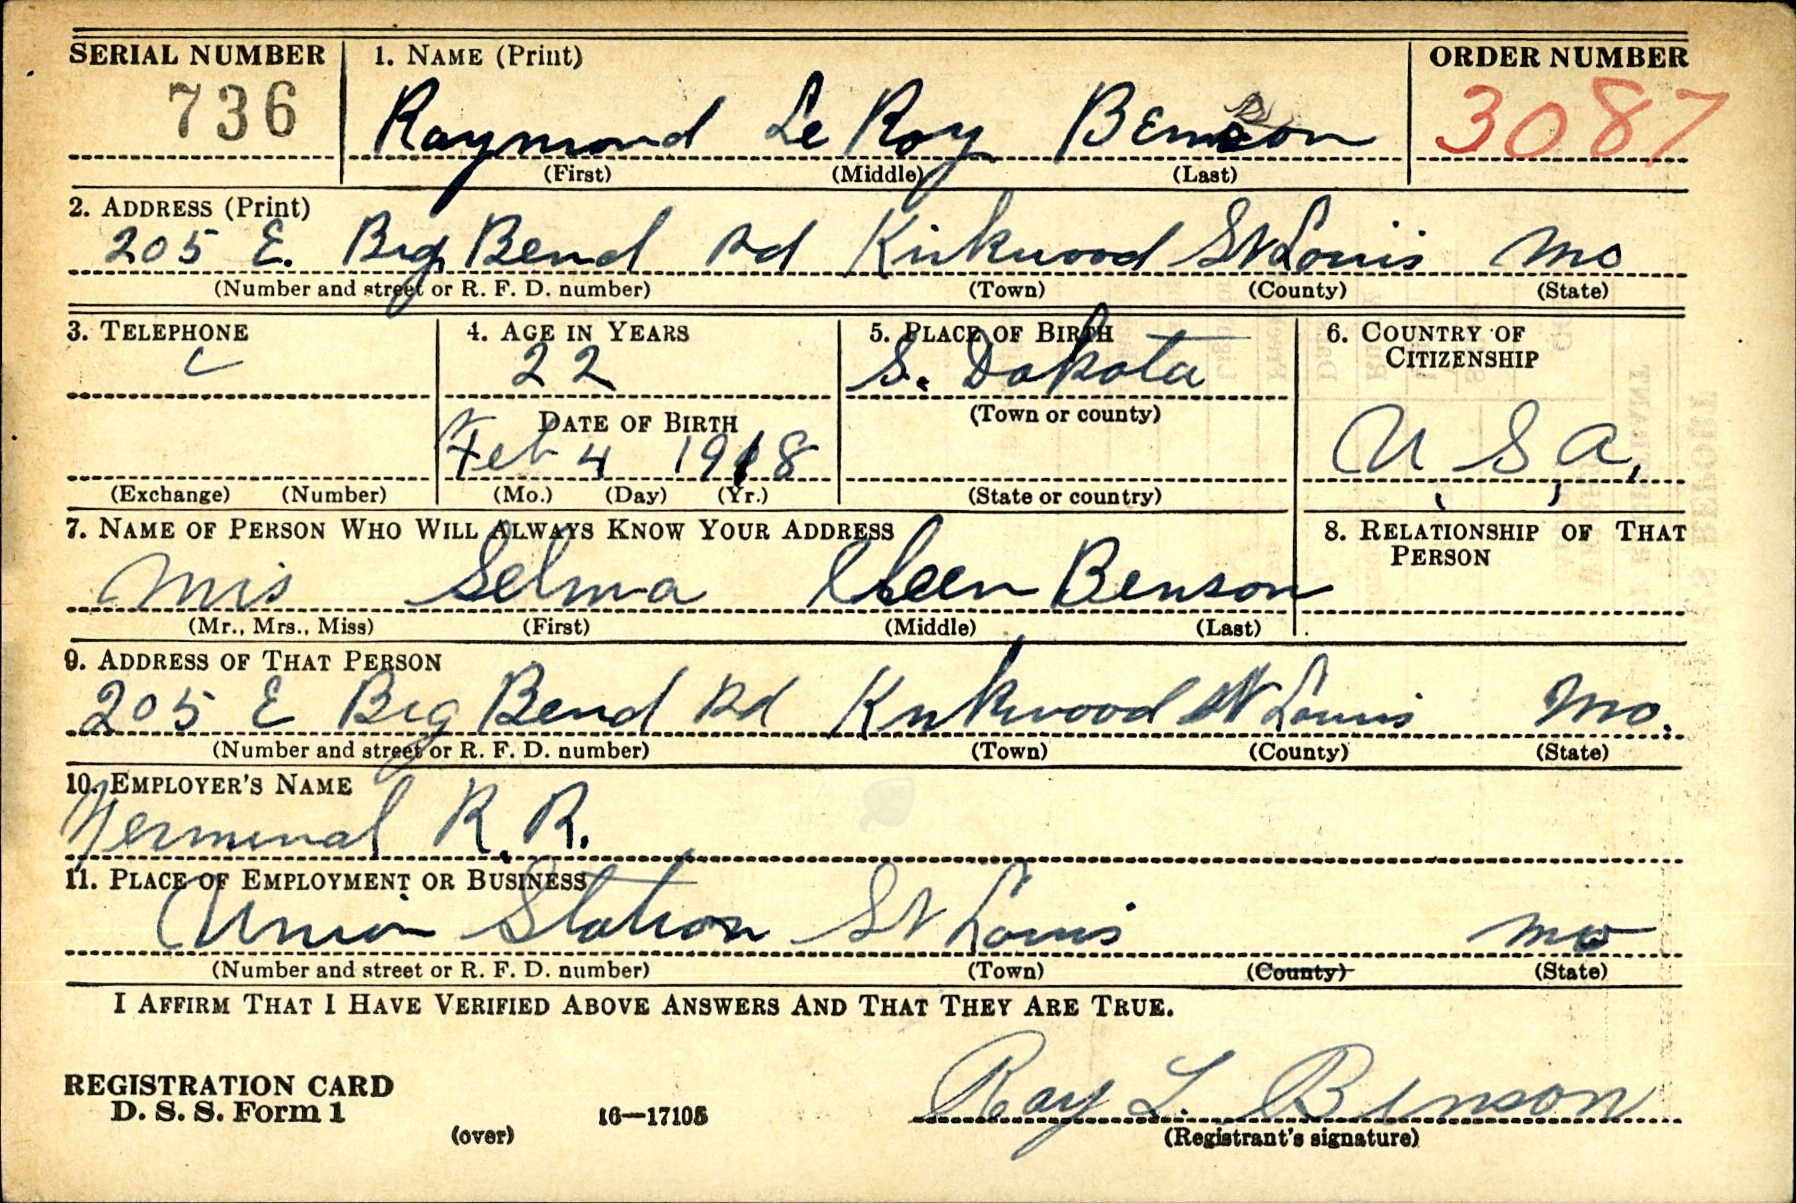 SERIAL NUMBER 1. NAME (Print) ORDER NUMBER
736 Raymond Le Roy Benson 3087
(First) (Middle) (Last)
2. ADDRESS (Print)
205 E. Big Bend Rd Kirkwood St Louis Mo
(Number and street or R. F. D. number) (Town) (County) (State)
3. TELEPHONE 4. AGE IN YEARS 5. PLACE OF BIRTH 6. COUNTRY OF CITIZENSHIP
22 S. Dakota
DATE OF BIRTH (Town or county)
Feb 4 1918 U S A.
(Exchange) (Number) (Mo.) (Day) (Yr.) (State or country)
7. NAME OF PERSON WHO WILL ALWAYS KNOW YOUR ADDRESS 8. RELATIONSHIP OF THAT PERSON
Mrs Selma Benson
(Mr., Mrs., Miss) (First) (Middle) (Last)
9. ADDRESS OF THAT PERSON
205 E Big Bend Rd Kirkwood St Louis Mo.
(Number and street or R. F. D. number) (Town) (County) (State)
10. EMPLOYER'S NAME
Terminal R. R.
11. PLACE OF EMPLOYMENT OR BUSINESS
Union Station St Louis Mo
(Number and street or R. F. D. number) (Town) (County) (State)
I AFFIRM THAT I HAVE VERIFIED ABOVE ANSWERS AND THAT THEY ARE TRUE.
REGISTRATION CARD
D. S. S. Form 1 16—17105 Ray L. Benson
(over) (Registrant's signature)